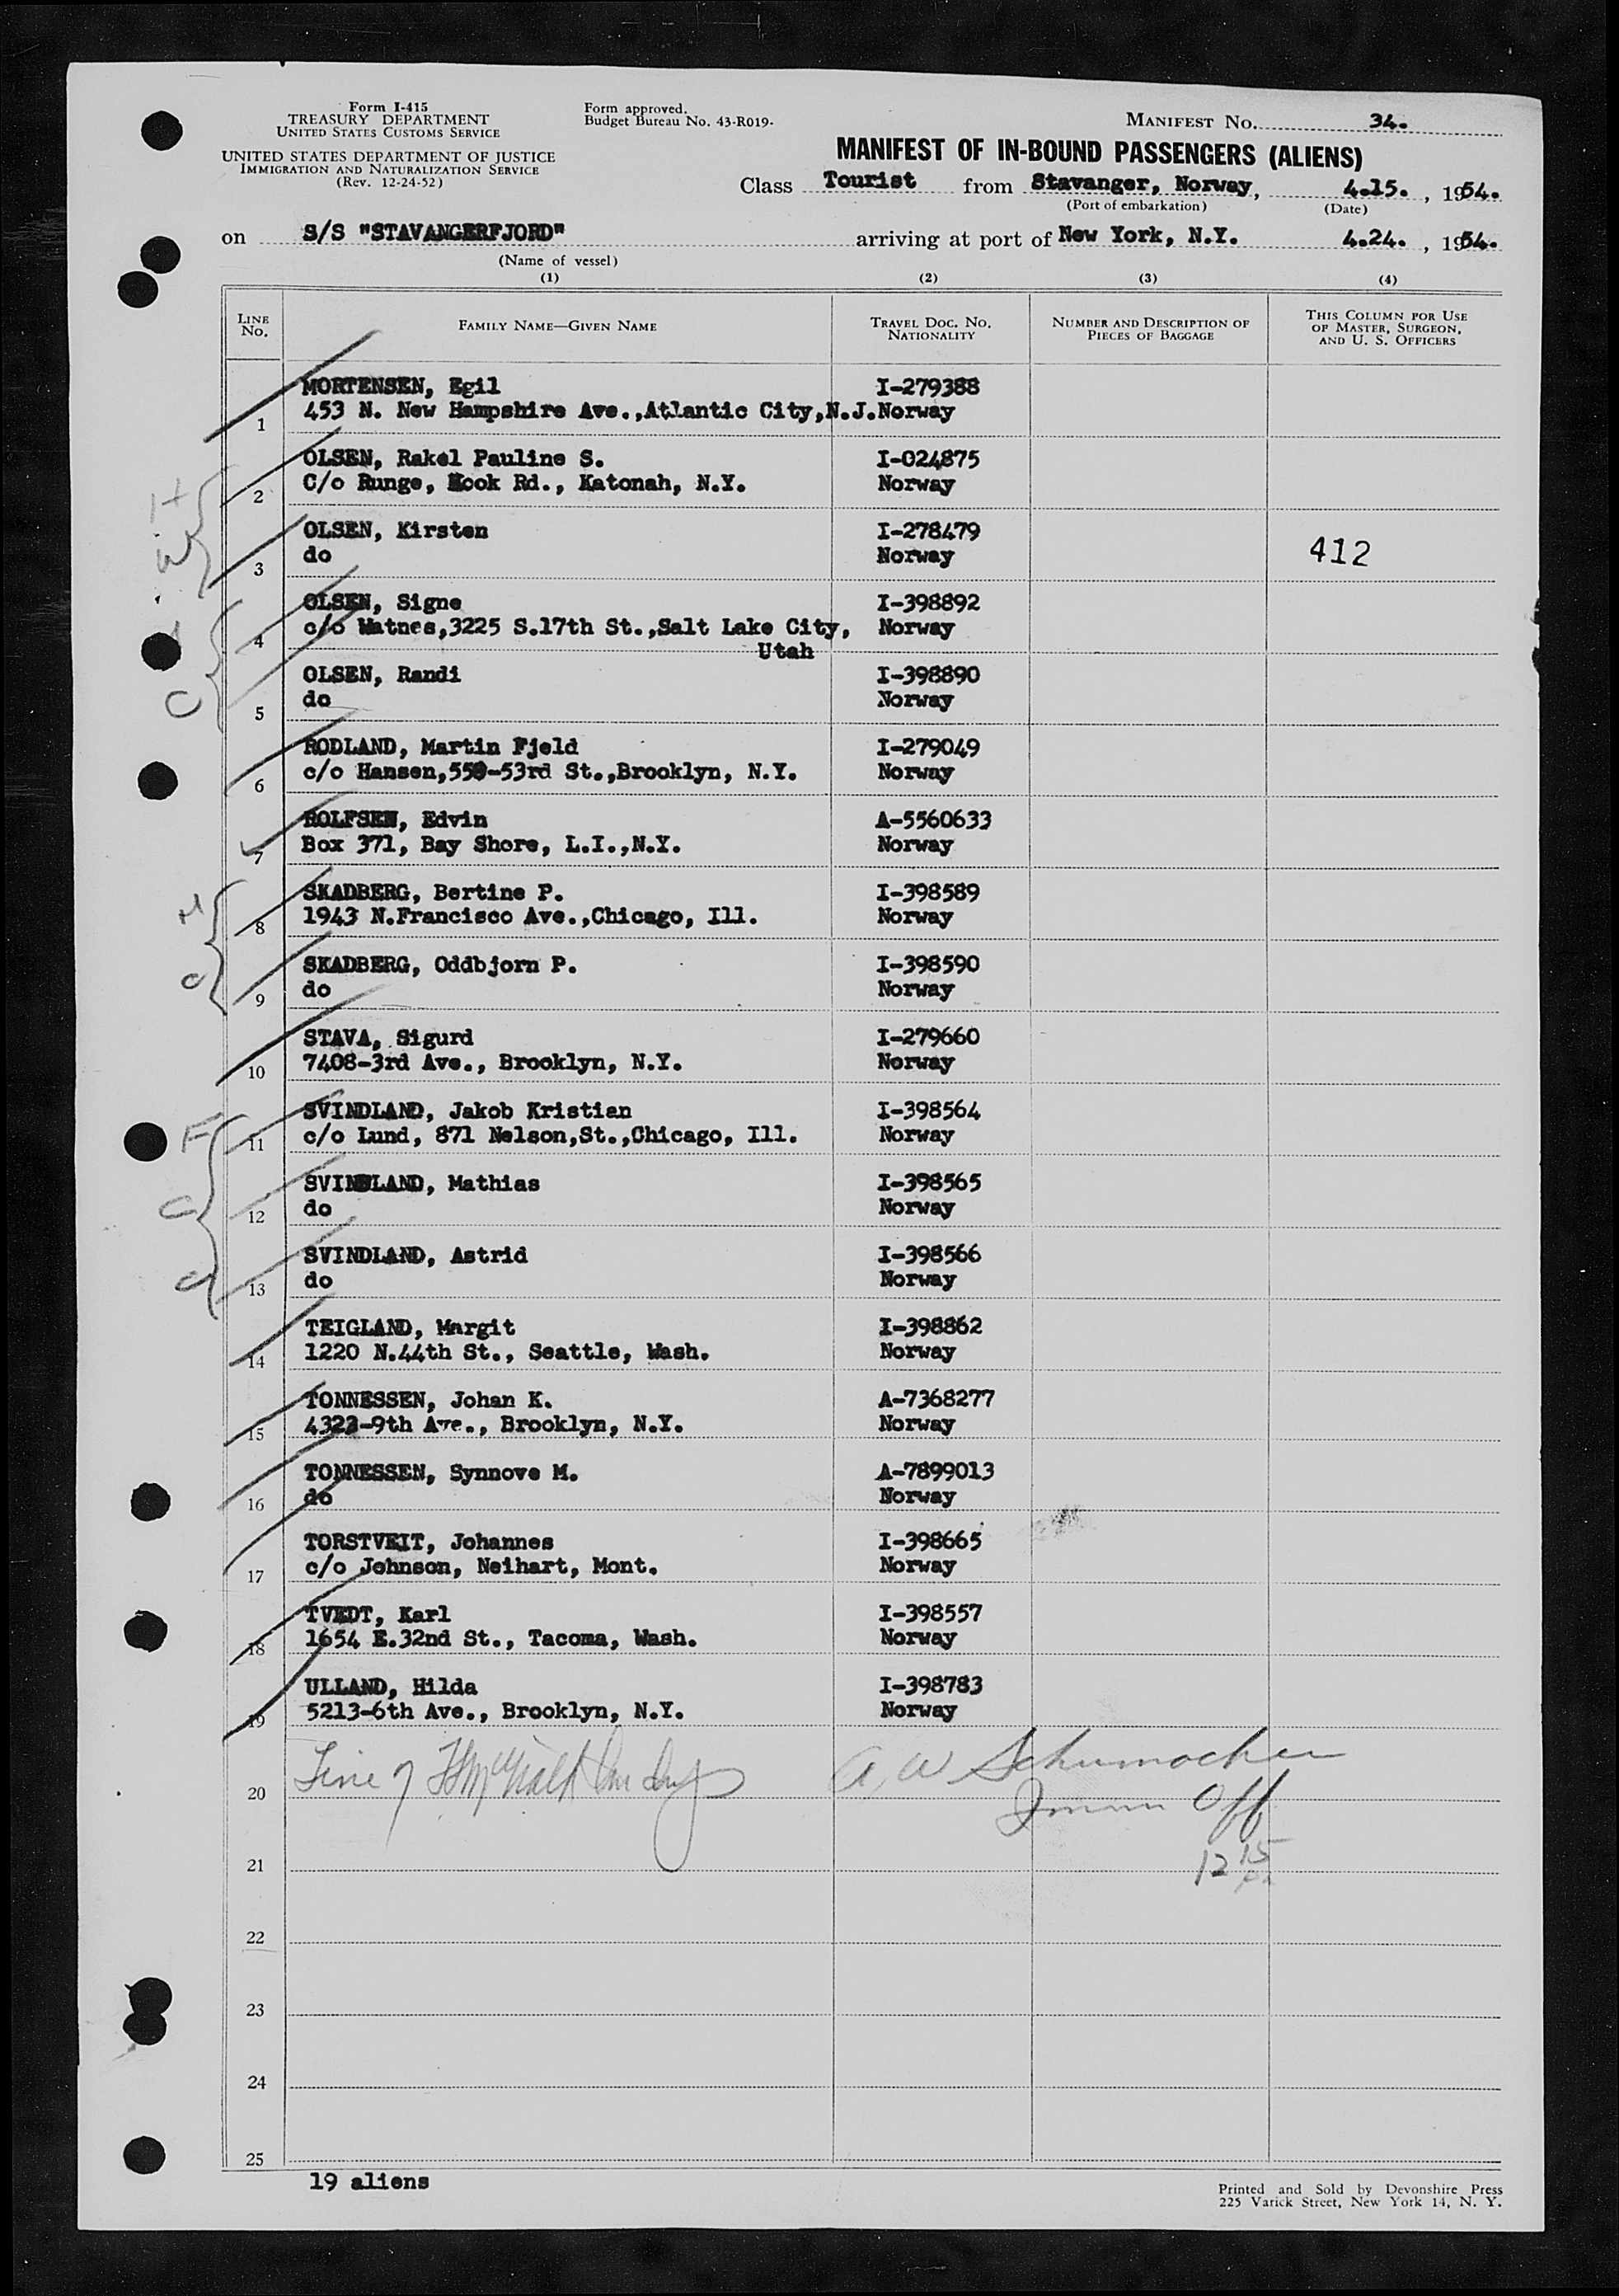 Form I-415
TREASURY DEPARTMENT
UNITED STATES CUSTOMS SERVICE
UNITED STATES DEPARTMENT OF JUSTICE
IMMIGRATION AND NATURALIZATION SERVICE
(Rev. 12-24-52)
Form approved.
Budget Bureau No. 43-R019.
MANIFEST No. 34.
MANIFEST OF IN-BOUND PASSENGERS (ALIENS)
Class Tourist from Stavanger, Norway, 4.15. , 1954.
(Port of embarkation) (Date)
on S/S "STAVANGERFJORD" arriving at port of New York, N.Y. 4.24. , 1954.
(Name of vessel)
(1) (2) (3) (4)
LINE No. FAMILY NAME—GIVEN NAME TRAVEL DOC. NO. NATIONALITY NUMBER AND DESCRIPTION OF PIECES OF BAGGAGE THIS COLUMN FOR USE OF MASTER, SURGEON, AND U. S. OFFICERS
MORTENSEN, Egil I-279388
1 453 N. New Hampshire Ave.,Atlantic City,N.J. Norway
OLSEN, Rakel Pauline S. I-024875
2 C/o Runge, Hook Rd., Katonah, N.Y. Norway
H
W
OLSEN, Kirsten I-278479
3 do Norway 412
OLSEN, Signe I-398892
4 c/o Watnes,3225 S.17th St.,Salt Lake City, Norway
Utah
C
OLSEN, Randi I-398890
5 do Norway
RODLAND, Martin Fjeld I-279049
6 c/o Hansen,559-53rd St.,Brooklyn, N.Y. Norway
ROLFSEN, Edvin A-5560633
7 Box 371, Bay Shore, L.I.,N.Y. Norway
M
SKADBERG, Bertine P. I-398589
8 1943 N.Francisco Ave.,Chicago, Ill. Norway
C
SKADBERG, Oddbjorn P. I-398590
9 do Norway
STAVA, Sigurd I-279660
10 7408-3rd Ave., Brooklyn, N.Y. Norway
F
SVINDLAND, Jakob Kristian I-398564
11 c/o Lund, 871 Nelson,St.,Chicago, Ill. Norway
C
SVINDLAND, Mathias I-398565
12 do Norway
C
SVINDLAND, Astrid I-398566
13 do Norway
TEIGLAND, Margit I-398862
14 1220 N.44th St., Seattle, Wash. Norway
TONNESSEN, Johan K. A-7368277
15 4323-9th Ave., Brooklyn, N.Y. Norway
TONNESSEN, Synnove M. A-7899013
16 do Norway
TORSTVEIT, Johannes I-398665
17 c/o Johnson, Neihart, Mont. Norway
TVEDT, Karl I-398557
18 1654 E.32nd St., Tacoma, Wash. Norway
ULLAND, Hilda I-398783
19 5213-6th Ave., Brooklyn, N.Y. Norway
A, W Schumacher
20 Immn Off
12 15
21
22
23
24
25
19 aliens
Printed and Sold by Devonshire Press
225 Varick Street, New York 14, N. Y.